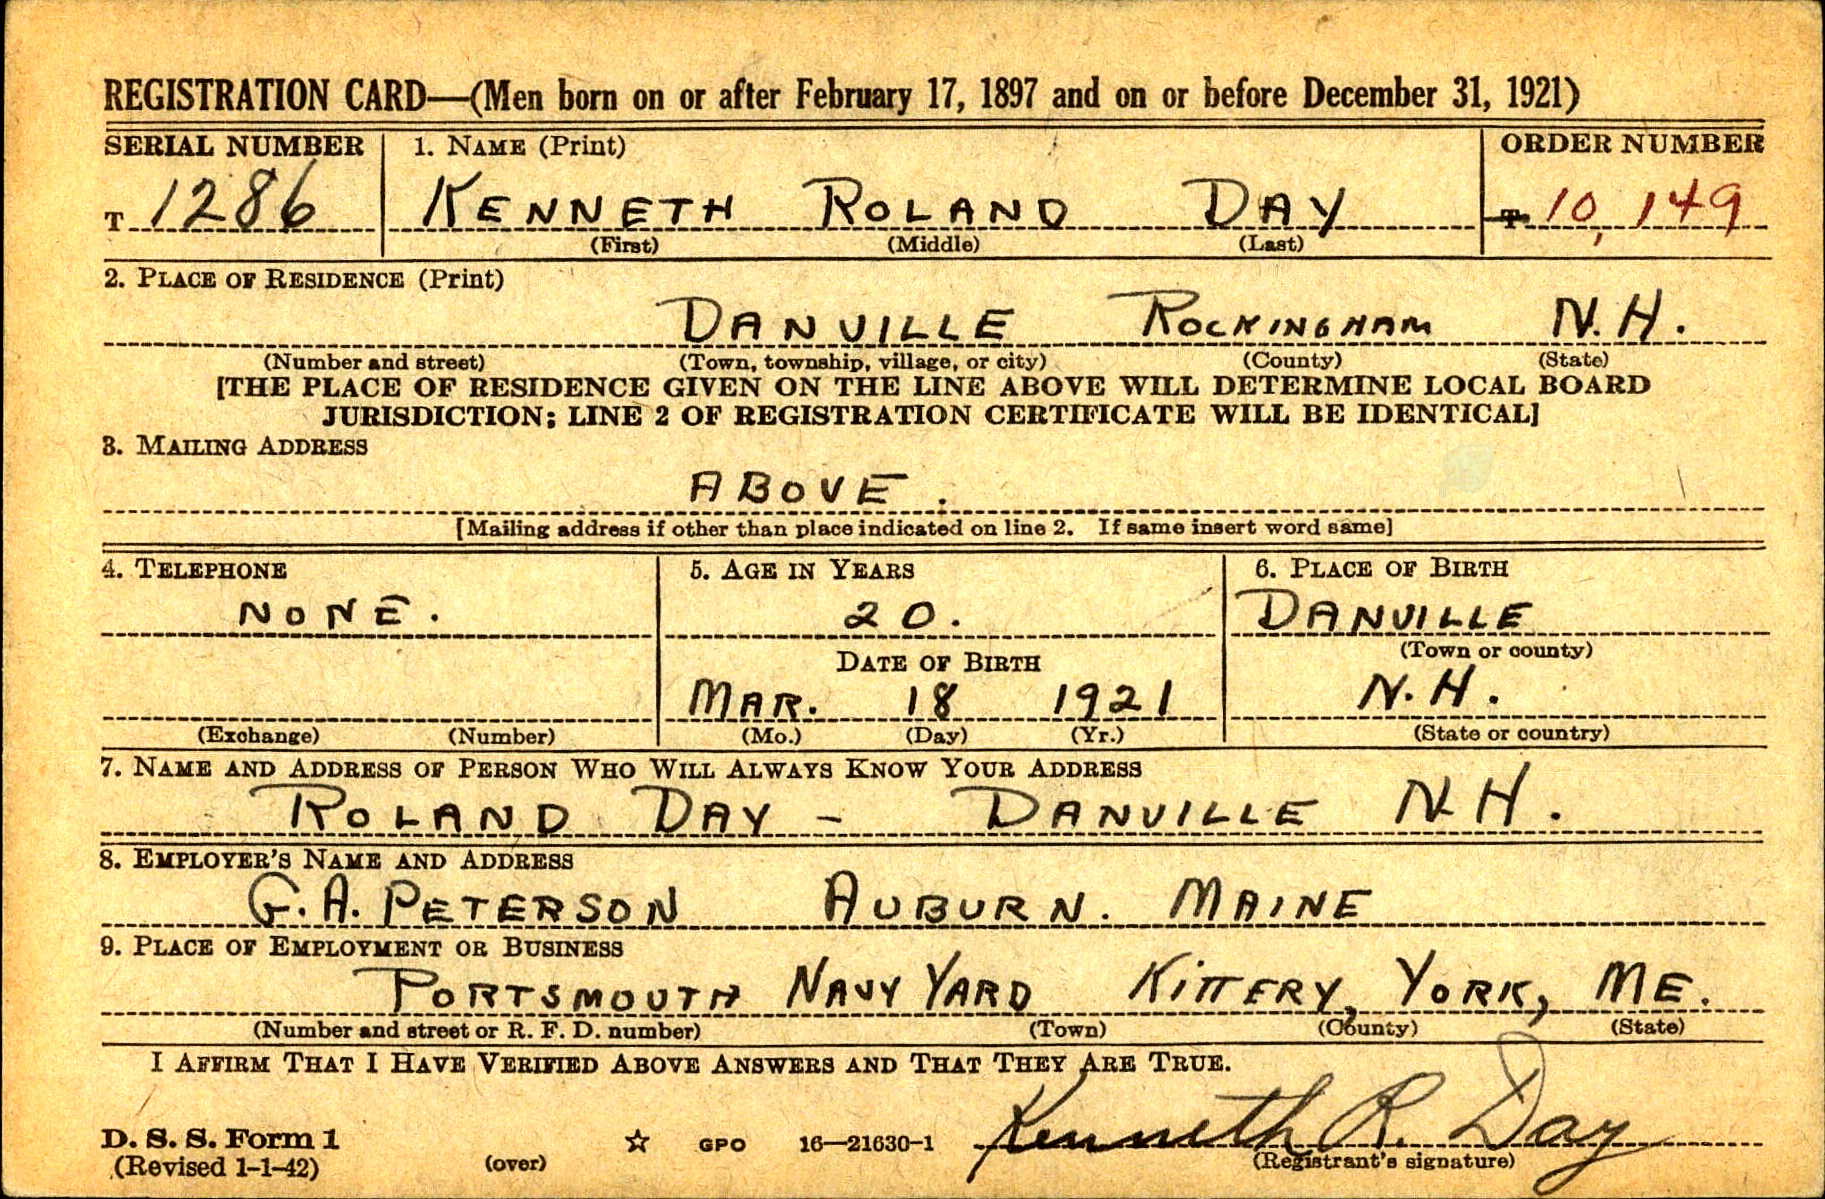 REGISTRATION CARD—(Men born on or after February 17, 1897 and on or before December 31, 1921)
SERIAL NUMBER 1. NAME (Print) ORDER NUMBER
T 1286 KENNETH ROLAND DAY T 10,149
(First) (Middle) (Last)
2. PLACE OF RESIDENCE (Print)
DANVILLE ROCKINGHAM N.H.
(Number and street) (Town, township, village, or city) (County) (State)
[THE PLACE OF RESIDENCE GIVEN ON THE LINE ABOVE WILL DETERMINE LOCAL BOARD
JURISDICTION; LINE 2 OF REGISTRATION CERTIFICATE WILL BE IDENTICAL]
3. MAILING ADDRESS
ABOVE.
[Mailing address if other than place indicated on line 2. If same insert word same]
4. TELEPHONE 5. AGE IN YEARS 6. PLACE OF BIRTH
NONE. 20. DANVILLE
DATE OF BIRTH (Town or county)
MAR. 18 1921 N.H.
(Exchange) (Number) (Mo.) (Day) (Yr.) (State or country)
7. NAME AND ADDRESS OF PERSON WHO WILL ALWAYS KNOW YOUR ADDRESS
ROLAND DAY - DANVILLE N.H.
8. EMPLOYER'S NAME AND ADDRESS
G.A. PETERSON AUBURN. MAINE
9. PLACE OF EMPLOYMENT OR BUSINESS
PORTSMOUTH NAVY YARD KITTERY, YORK, ME.
(Number and street or R. F. D. number) (Town) (County) (State)
I AFFIRM THAT I HAVE VERIFIED ABOVE ANSWERS AND THAT THEY ARE TRUE.
Kenneth R. Day
D. S. S. Form 1 ☆ GPO 16—21630-1
(Revised 1-1-42) (over) (Registrant's signature)